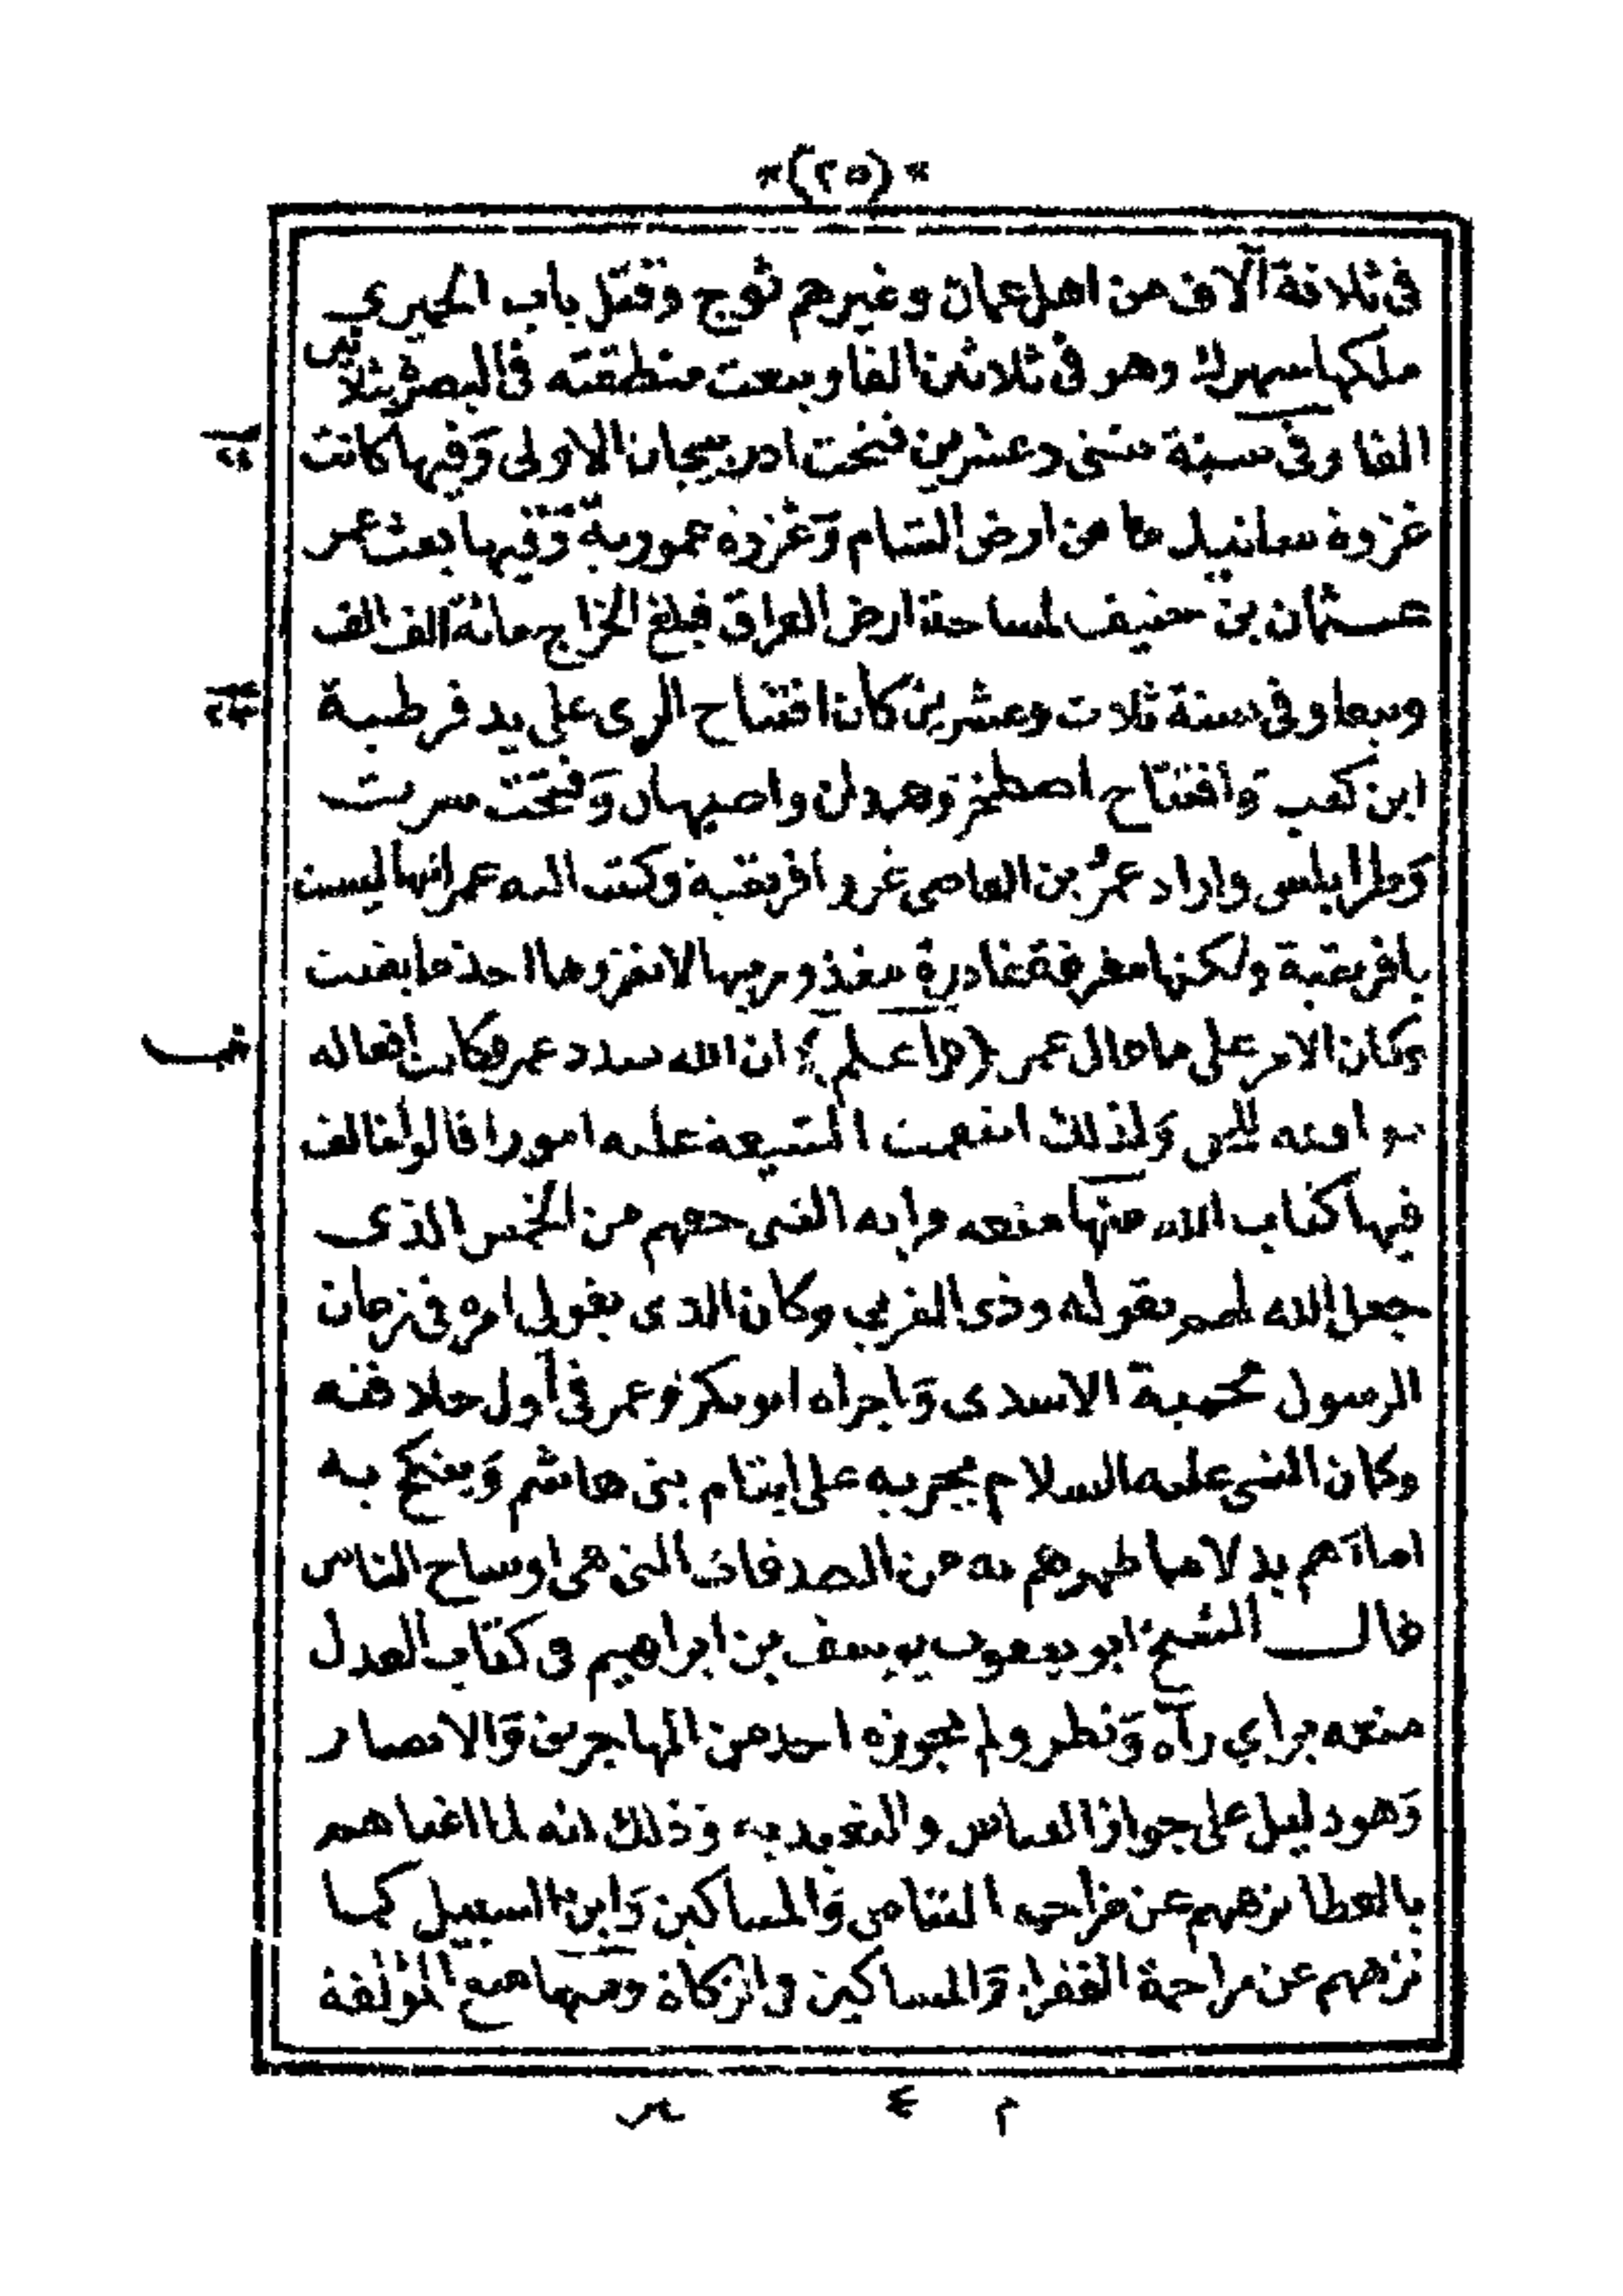 *(٢٥)*
فى ثلاثة آلاف من اهل عمان وغيرهم توج وقتل باب الحميرى
ملكها سهرك وهو فى ثلاثين الفا وبيعت منطقته فى البصرة بثلاثين
الفا وفى سنة ثنتى وعشرين فتحت ادربيجان الاولى وَفيها كانت
غزوة من ارض الشام وَغزوة عمورية وَفيها بعث عمر
عثمان بن حنيف لمساحة ارض العراق فبلغ الخراج مائة الف الف
وفى سنة ثلاث وعشرين كان افتتاح الرى على يد قرظبة
ابن كعب وَافتتاح اصطخر وَهمدان واصبهان وَفتحت سرت
وَطرابلس واراد عمرُ بن العاصى غزو افريقية وكتب اليه عمر انها ليست
بافريقية ولكنها مفرقة غادرة مغذور بها لا يغزوها احد ما بقيت
وكان الامر على ما قال عمر (واعلم) ان الله سدد عمر فكانت افعاله
موافقة للحق وَلذلك انتقمت الشيعة عليه امورا قالوا خالف
فيها كتاب الله منها منعه قرابة النبى حقهم من الخمس الذى
جعل الله لهم بقوله وذى القربى وكان الذى يتولى امره فى زمان
الرسول محمية الاسدى وَاجراه ابو بكر وَعمر فى أول خلافته
وكان النبى عليه السلام يجريه على ايتام بنى هاشم وَينكح به
اماءهم بدلا مما طهرهم به من الصدقات التى هى اوساح الناس
قال الشيخ ابو يعقوب يوسف بن ابراهيم فى كتاب العدل
منعه براي رآه وَنظر ولم يجوزه احد من المهاجرين وَالانصار
وَهو دليل على جواز القياس والتعبد به وَذلك انه لما اغناهم
بالعطا نزههم عن مزاحمة اليتامى وَالمساكين وَابن السبيل كما
نزههم عن مزاحمة الفقراء وَالمساكين والزكاة ومنها منع المؤلفة
م ٤ س